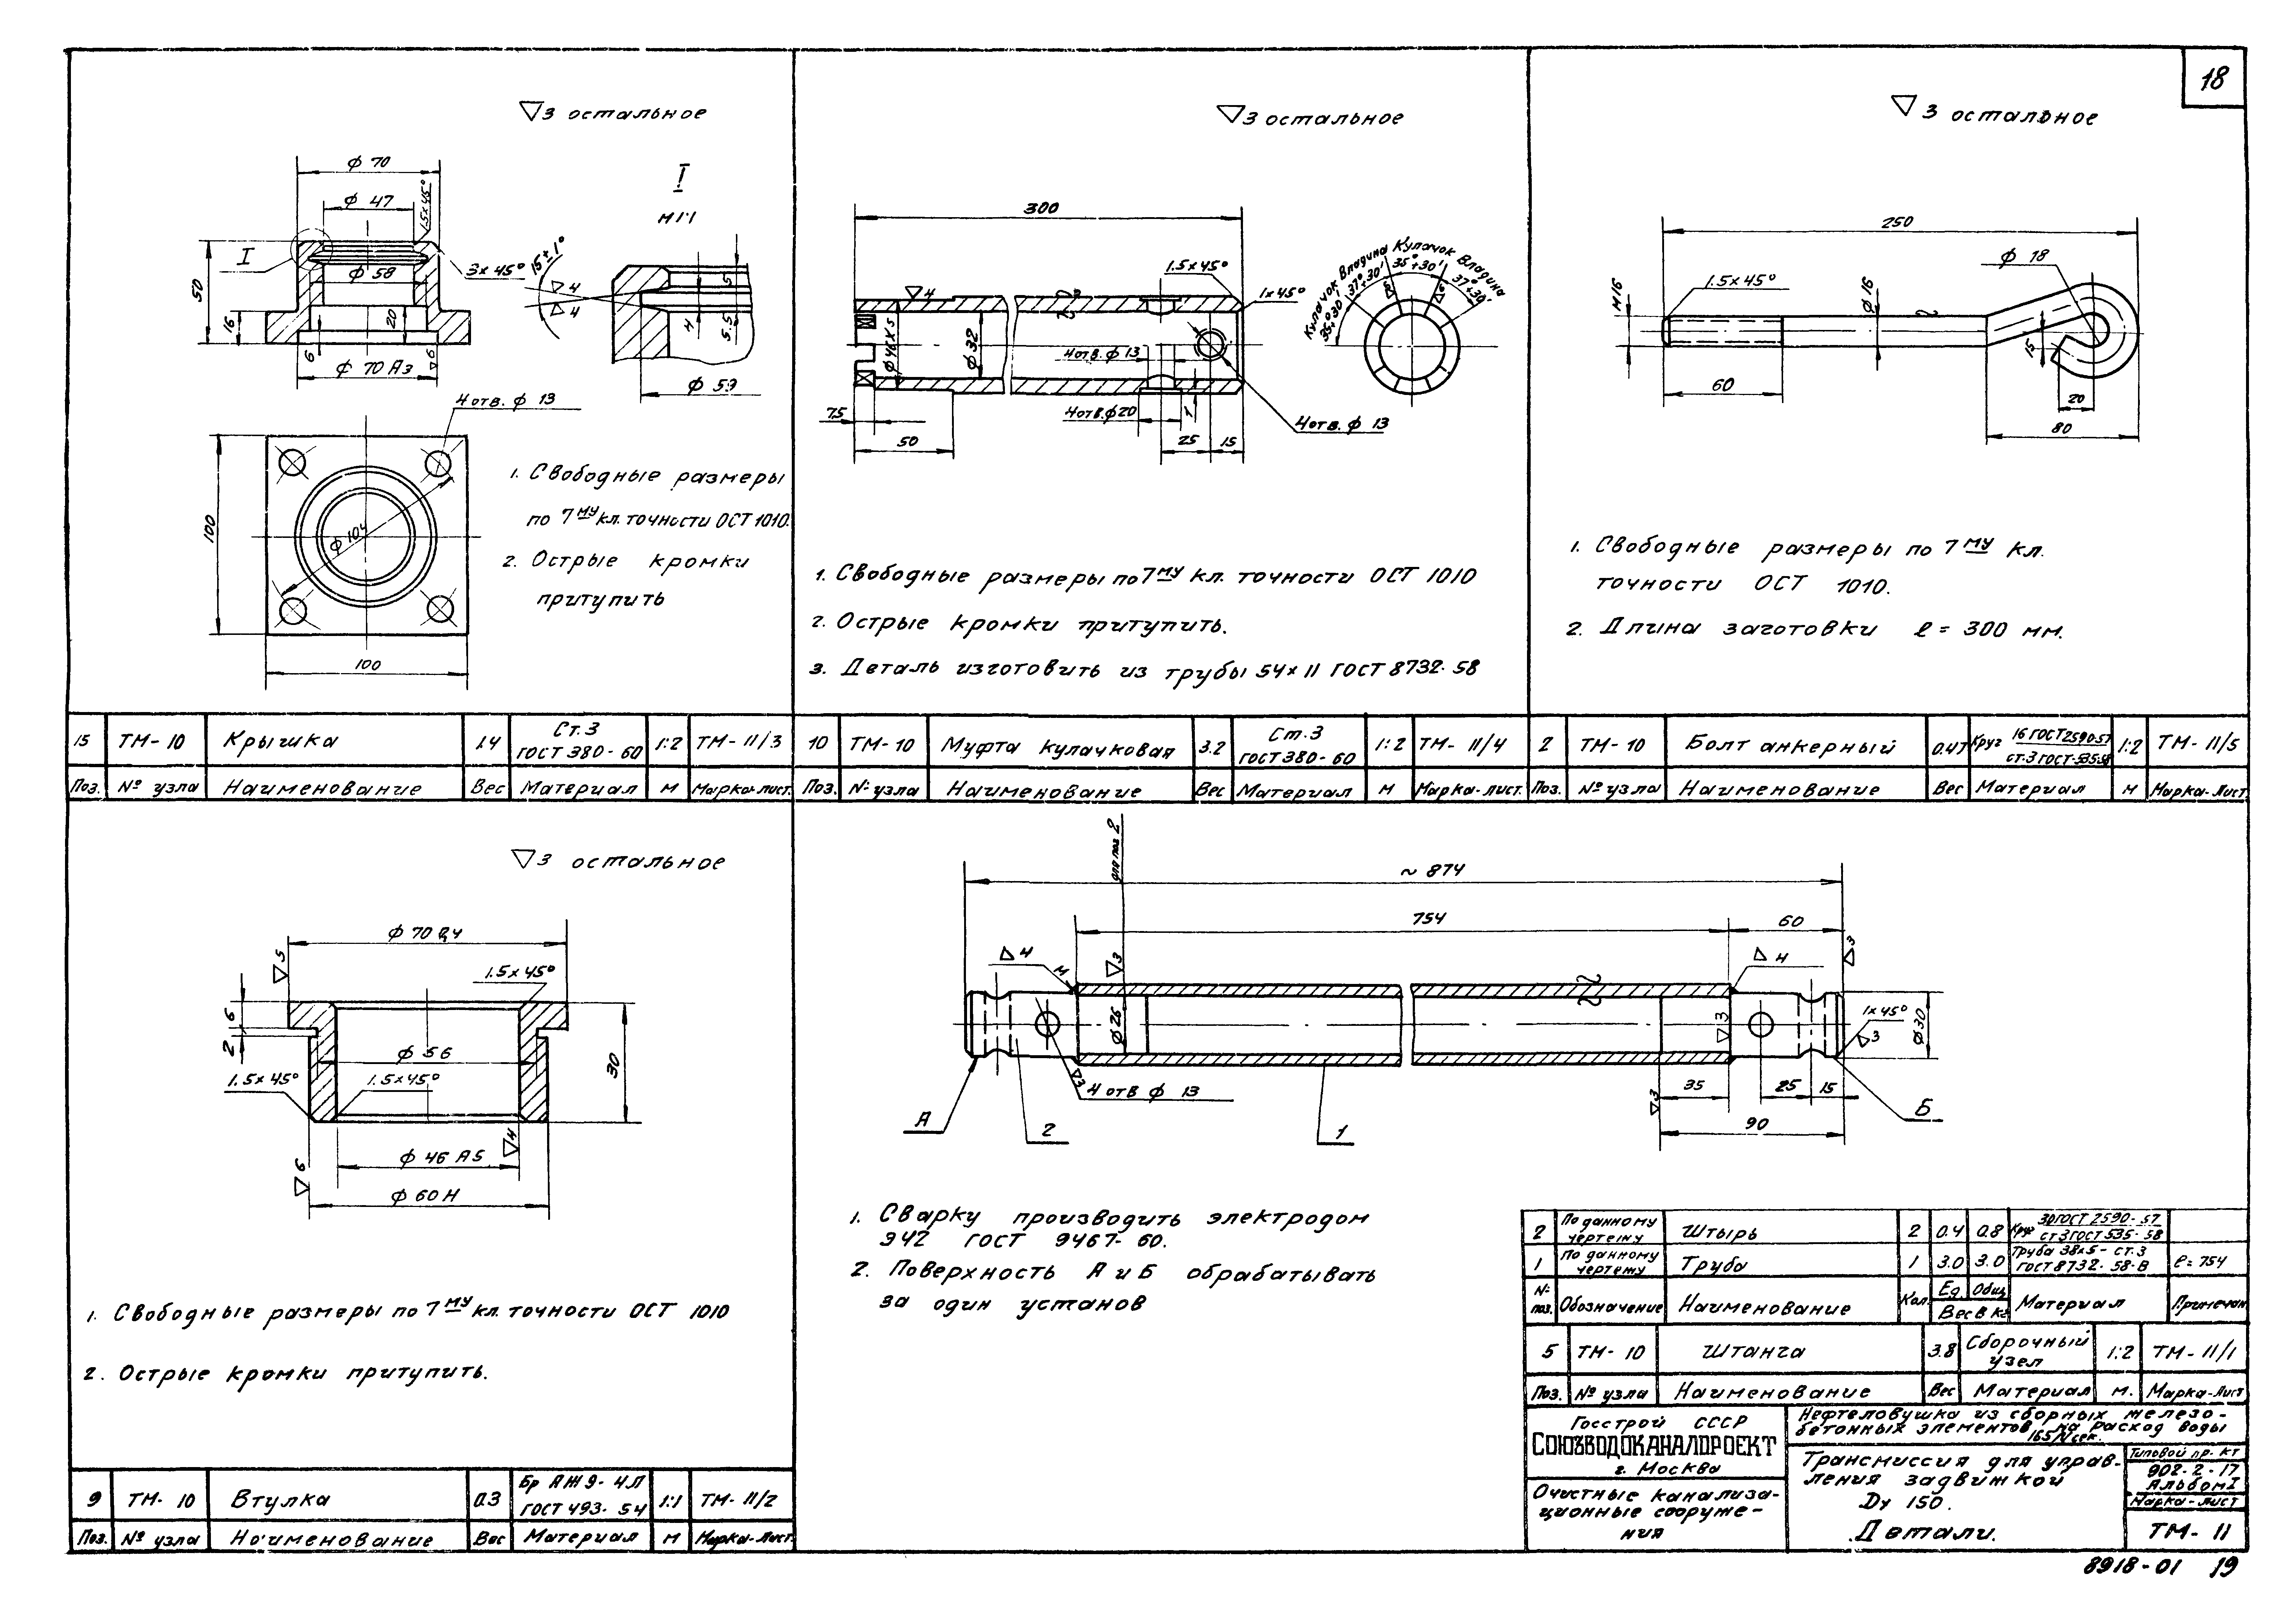 18
▽3 остальное
ф 70
ф 47
1.5×45°
I
ф 58
3×45°
50
16
20
6
ф 70 А3
▽6
I
М 1:1
15°±1°
▽4
▽4
5
5.5
ф 59
4 отв. ф 13
100
ф 104
100
1. Свободные размеры
по 7му кл. точности ОСТ 1010.
2. Острые кромки
притупить
15 ТМ-10 Крышка 1.4 Ст.3 ГОСТ 380-60 1:2 ТМ-11/3
Поз. № узла Наименование Вес Материал М Марка-лист.
▽3 остальное
300
▽4
1.5×45°
1×45°
ф 46 Х5
ф 32
4 отв. ф 13
4 отв. ф 20
1
4 отв. ф 13
7.5
50
25
15
Кулачок Владина Кулачок Владина
35°+30' 37°+30' 35°+30' 37°+30'
1. Свободные размеры по 7му кл. точности ОСТ 1010
2. Острые кромки притупить.
3. Деталь изготовить из трубы 54×11 ГОСТ 8732-58
10 ТМ-10 Муфта кулачковая 3.2 Ст.3 ГОСТ 380-60 1:2 ТМ-11/4
Поз. № узла Наименование Вес Материал М Марка-лист.
▽3 остальное
250
ф 18
1.5×45°
М16
ф 16
15
60
20
80
1. Свободные размеры по 7му кл.
точности ОСТ 1010.
2. Длина заготовки ℓ = 300 мм.
2 ТМ-10 Болт анкерный 0.47 Круг 16 ГОСТ 2590-57 ст.3 ГОСТ-535-58 1:2 ТМ-11/5
Поз. № узла Наименование Вес Материал М Марка-Лист.
▽3 остальное
ф 70
▽5
1.5×45°
6
2
ф 56
30
1.5×45°
1.5×45°
▽4
ф 46 А5
▽6
ф 60 Н
1. Свободные размеры по 7му кл. точности ОСТ 1010
2. Острые кромки притупить.
9 ТМ-10 Втулка 0.3 Бр АЖ9-4Л ГОСТ 493-54 1:1 ТМ-11/2
Поз. № узла Наименование Вес Материал М Марка-лист.
для поз 2
~ 874
754
60
▽4
▽3
▽4
▽3
ф 26
▽3
1×45°
▽3
ф 30
▽3
4 отв ф 13
▽3
35
25
15
90
А
2
1
Б
1. Сварку производить электродом
Э42 ГОСТ 9467-60.
2. Поверхность А и Б обрабатывать
за один установ
2 По данному чертежу Штырь 2 0.4 0.8 Круг 30 ГОСТ 2590-57 ст3 ГОСТ 535-58
1 По данному чертежу Труба 1 3.0 3.0 Труба 38×5 - ст.3 ГОСТ 8732-58-В ℓ = 754
№ поз. Обозначение Наименование Кол. Ед. Общ Вес в кг Материал Примечан
5 ТМ-10 Штанга 3.8 Сборочный узел 1:2 ТМ-11/1
Поз. № узла Наименование Вес Материал М. Марка-Лист
Госстрой СССР
СОЮЗВОДОКАНАЛПРОЕКТ
г. Москва
Нефтеловушка из сборных железо-
бетонных элементов на расход воды
165 л/сек.
Очистные канализа-
ционные сооруже-
ния
Трансмиссия для управ-
ления задвижкой
Ду 150.
Детали.
Типовой пр-кт
902-2-17
Альбом I
Марка-лист
ТМ-11
8918-01 19